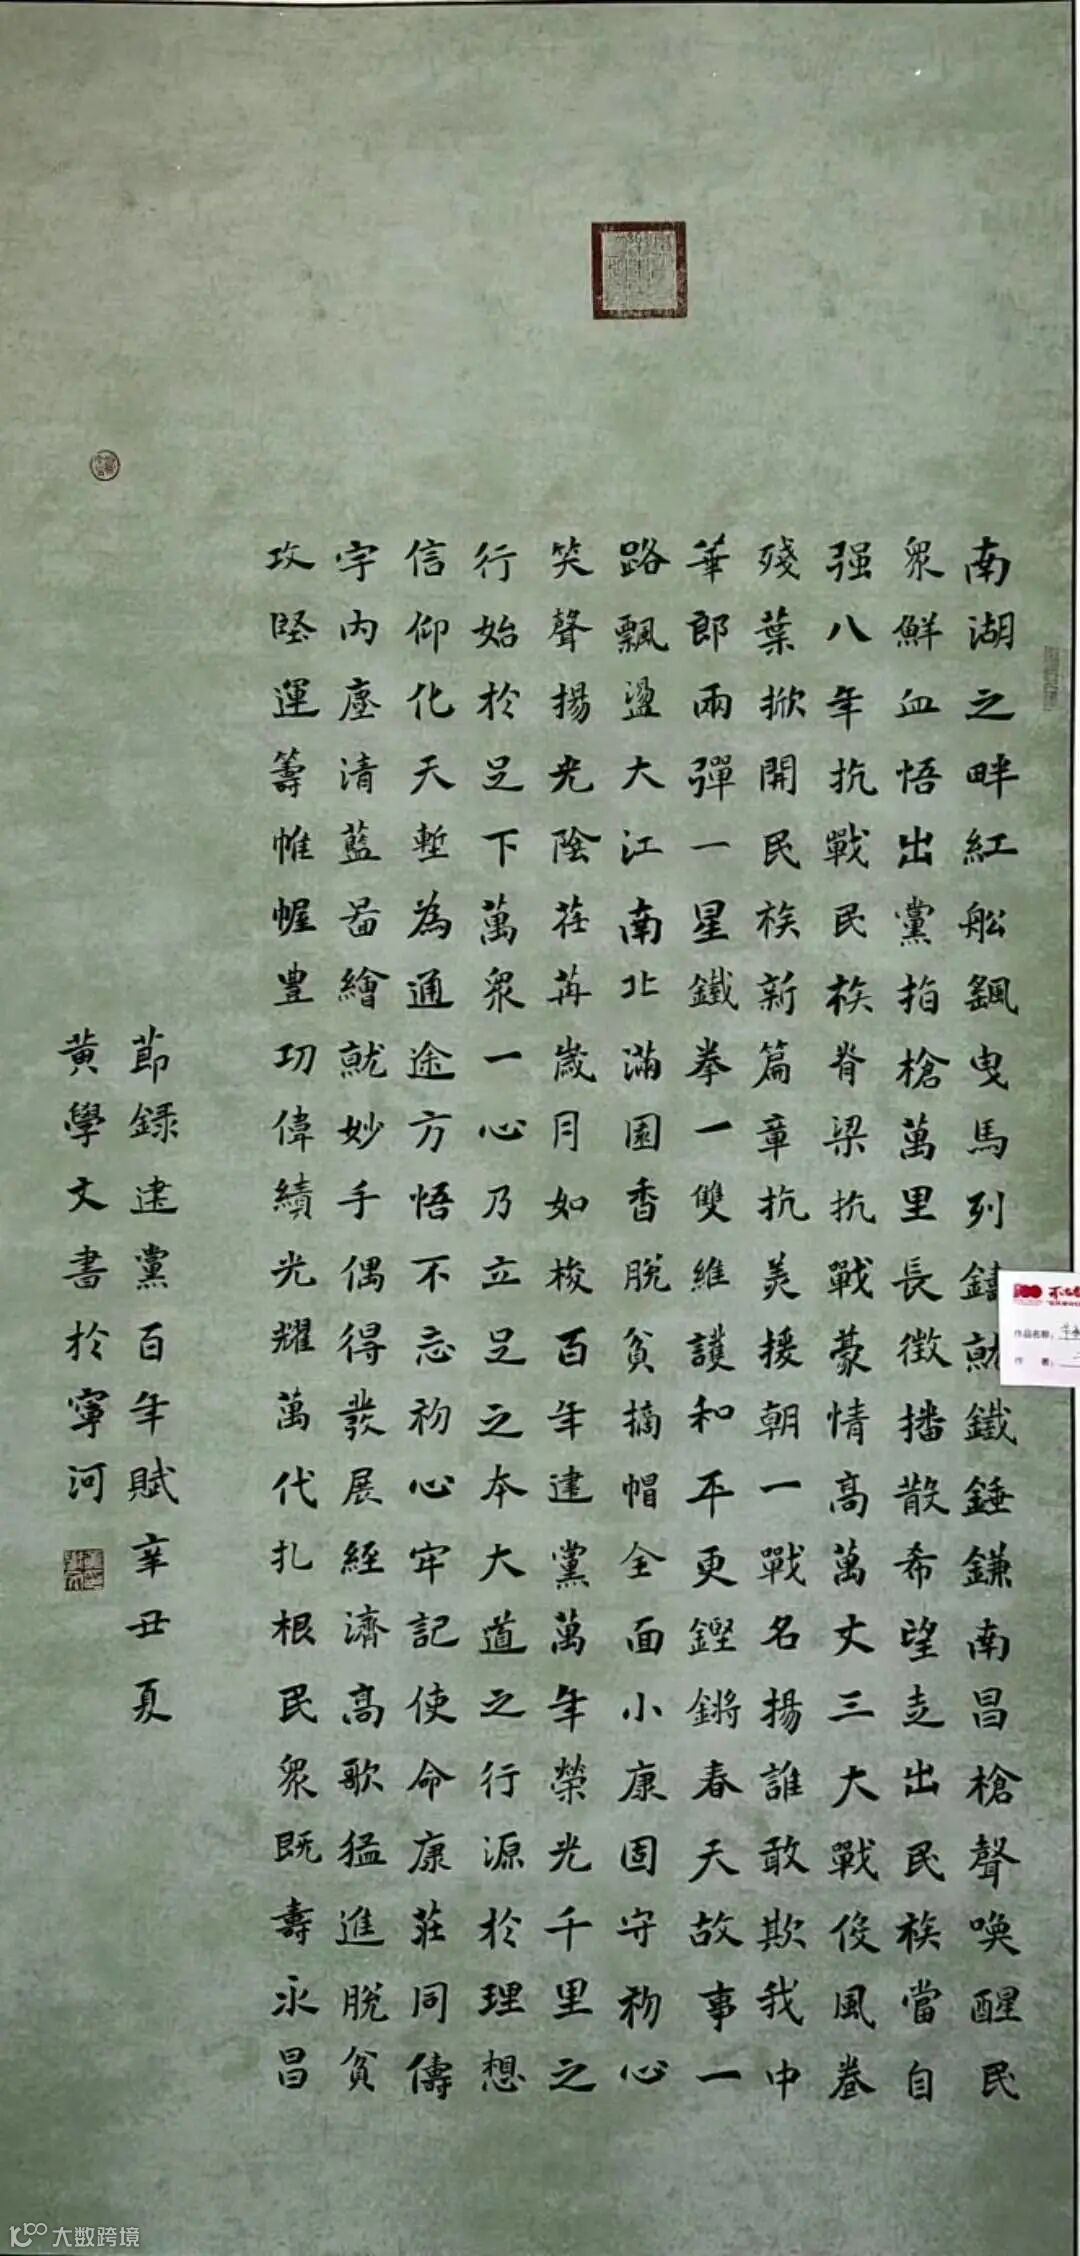 南湖之畔紅舩飄曳馬列鑄就鐵錘鎌南昌槍聲喚醒民
衆鮮血悟出黨指槍萬里長徵播散希望走出民族當自
强八年抗戰民族脊梁抗戰豪情高萬丈三大戰役風卷
殘葉掀開民族新篇章抗美援朝一戰名揚誰敢欺我中
華郎兩彈一星鐵拳一雙維護和平更鏗鏘春天故事一
路飄盪大江南北滿園香脫貧摘帽全面小康固守初心
笑聲揚光陰荏苒歲月如梭百年建黨萬年榮光千里之
行始於足下萬衆一心乃立足之本大道之行源於理想
信仰化天塹為通途方悟不忘初心牢記使命康莊同儔
宇內塵清藍圖繪就妙手偶得發展經濟高歌猛進脫貧
攻堅運籌帷幄豊功偉績光耀萬代扎根民衆既壽永昌
節錄建黨百年賦辛丑夏
黄學文書於寧河
作品名称：
作 者：
大数跨境